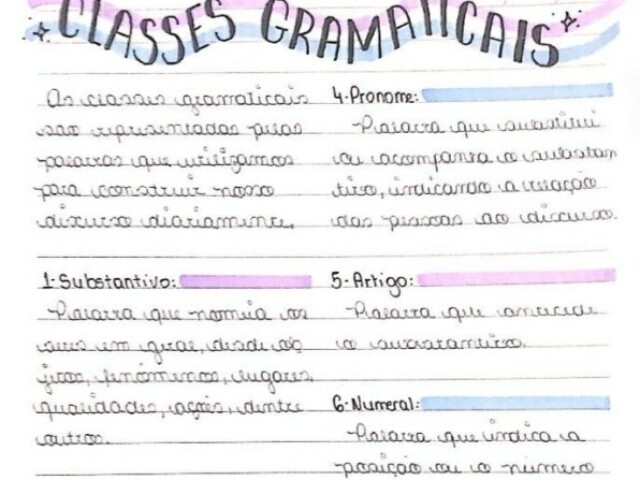 CLASSES GRAMATICAIS
As classes gramaticais
são representadas pelas
palavras que utilizamos
para construir nosso
discurso diariamente.
1-Substantivo:
Palavra que nomeia os
seres em geral, desde ob
jetos, fenômenos, lugares,
qualidades, ações, dentre
outros.
4-Pronome:
Palavra que substitui
ou acompanha o substan
tivo, indicando a relação
das pessoas do discurso.
5-Artigo:
Palavra que antecede
o substantivo.
6-Numeral:
Palavra que indica a
posição ou o número